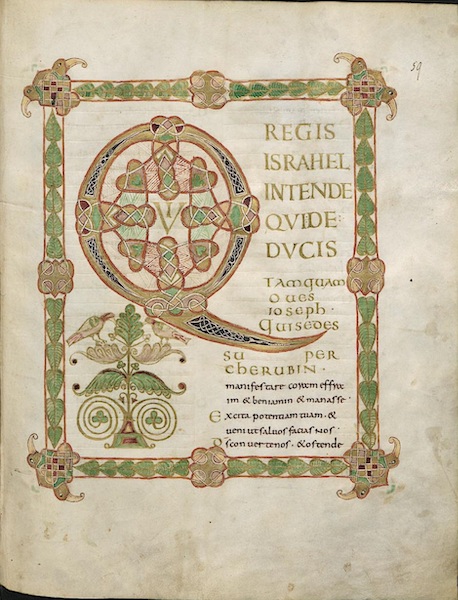 59
QVI
REGIS
ISRAHEL
INTENDE
QVIDE:
DVCIS
TAMQUAM
OUES
IOSEPH·
QUISEDES
SU PER
CHERUBIN·
manifestare coram effra
im & beniamin & manasse·
Excita potentiam tuam· &
ueni ut saluos facias nos·
Ds conuerte nos· & ostende